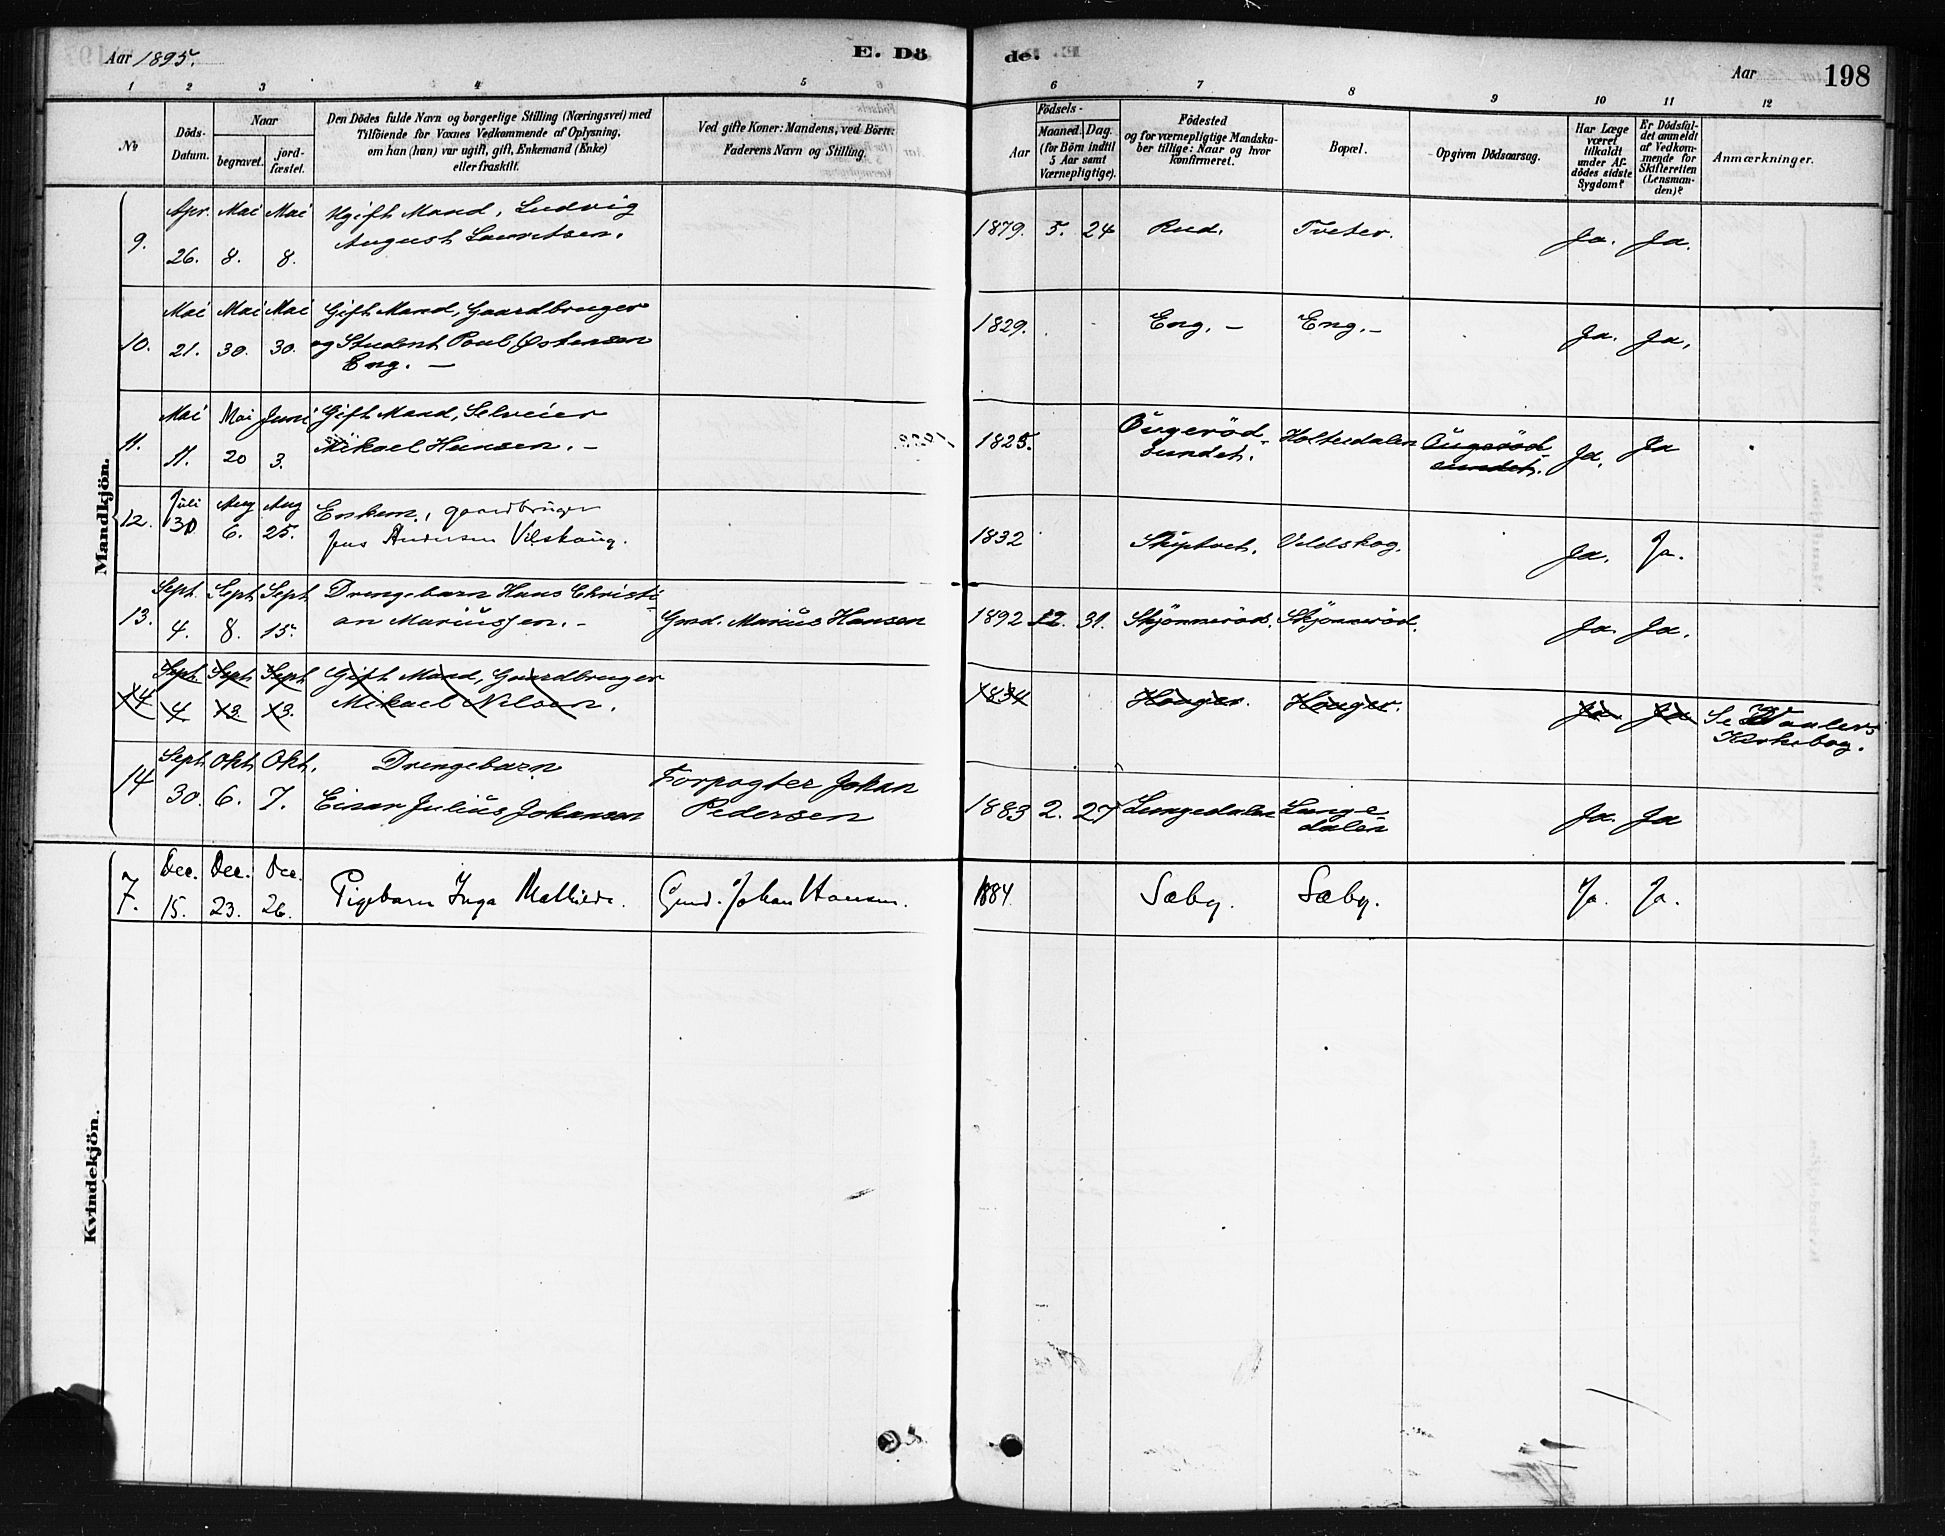 Aar 1895.
E. Dö
de.
Aar
198
1 2 3 4 5 6 7 8 9 10 11 12
No
Döds-
Datum.
Naar
begravet.
jord-
fæstet.
Den Dödes fulde Navn og borgerlige Stilling (Næringsvei) med
Tilföiende for Voxnes Vedkommende af Oplysning,
om han (hun) var ugift, gift, Enkemand (Enke)
eller fraskilt.
Ved gifte Koner: Mandens, ved Börn:
Faderens Navn og Stilling.
Aar
Födsels-
Maaned. Dag.
(for Börn indtil
5 Aar samt
Værnepligtige).
Födested
og for værnepligtige Mandska-
ber tillige: Naar og hvor
konfirmeret.
Bopæl.
Opgiven Dödsaarsag.
Har Læge
været
tilkaldt
under Af-
dödes sidste
Sygdom?
Er Dödsfal-
det anmeldt
af Vedkom-
mende for
Skifteretten
(Lensman-
den)?
Anmærkninger.
Mandkjön.
9. Apr. 26. Mai 8. Mai 8. Ugift Mand, Ludvig
August Lauritsen. 1879. 5. 24 Rud. Tveter. Ja. Ja.
10. Mai 21. Mai 30. Mai 30. Gift Mand, Gaardbruger
og Student Poul Østensen
Eng. — 1829. Eng. — Eng. — Ja. Ja.
11. Mai 11. Mai 20 Juni 3. Gift Mand, Selveier
Mikael Hansen. — 1825. Augeröd-
sundet. Holtedalen Augeröd-
sundet. Ja. Ja
12. Juli 30 Aug 6. Aug 25. Enkem., gaardbruger
Jens Andersen Vilskoug. 1832 Skiptvet. Vildskog. Ja. Ja.
13. Sept. 4. Sept. 8. Sept. 15. Drengebarn Hans Christi-
an Mariussen. — Gmd. Marius Hansen 1892 12. 31. Skjönneröd. Skjönneröd. Ja. Ja.
14 Sept. 4 Sept 13 Sept 13. Gift Mand, Gaardbruger
Mikael Nilsen. 1834 Houger. Houger. Ja. Ja Se Vaaler
Kirkebog.
14 Sept. 30. Okt. 6. Okt. 7. Drengebarn
Einar Julius Johansen Forpagter Johan
Pedersen 1883 2. 27 Lungedalen Lunge
dalen Ja. Ja
Kvindekjön.
7. Dec. 15. Dec. 23. Dec. 26. Pigebarn Inga Mathilde. Gmd. Johan Hansen. 1884 Sæby. Sæby. Ja. Ja.